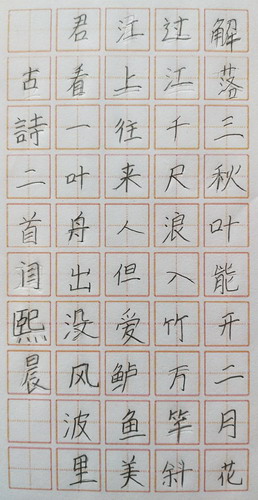 解落三秋叶能开二月花
过江千尺浪入竹万竿斜
江上往来人但爱鲈鱼美
君看一叶舟出没风波里
古詩二首熙晨